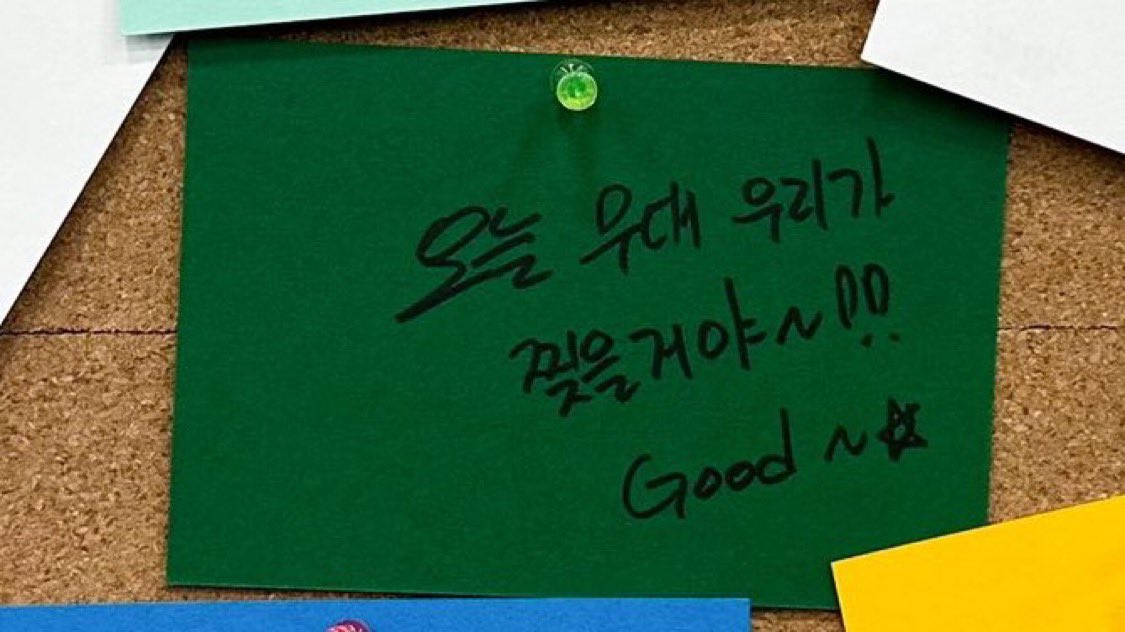 오늘 무대 우리가
찢을거야~!!
Good ~☆